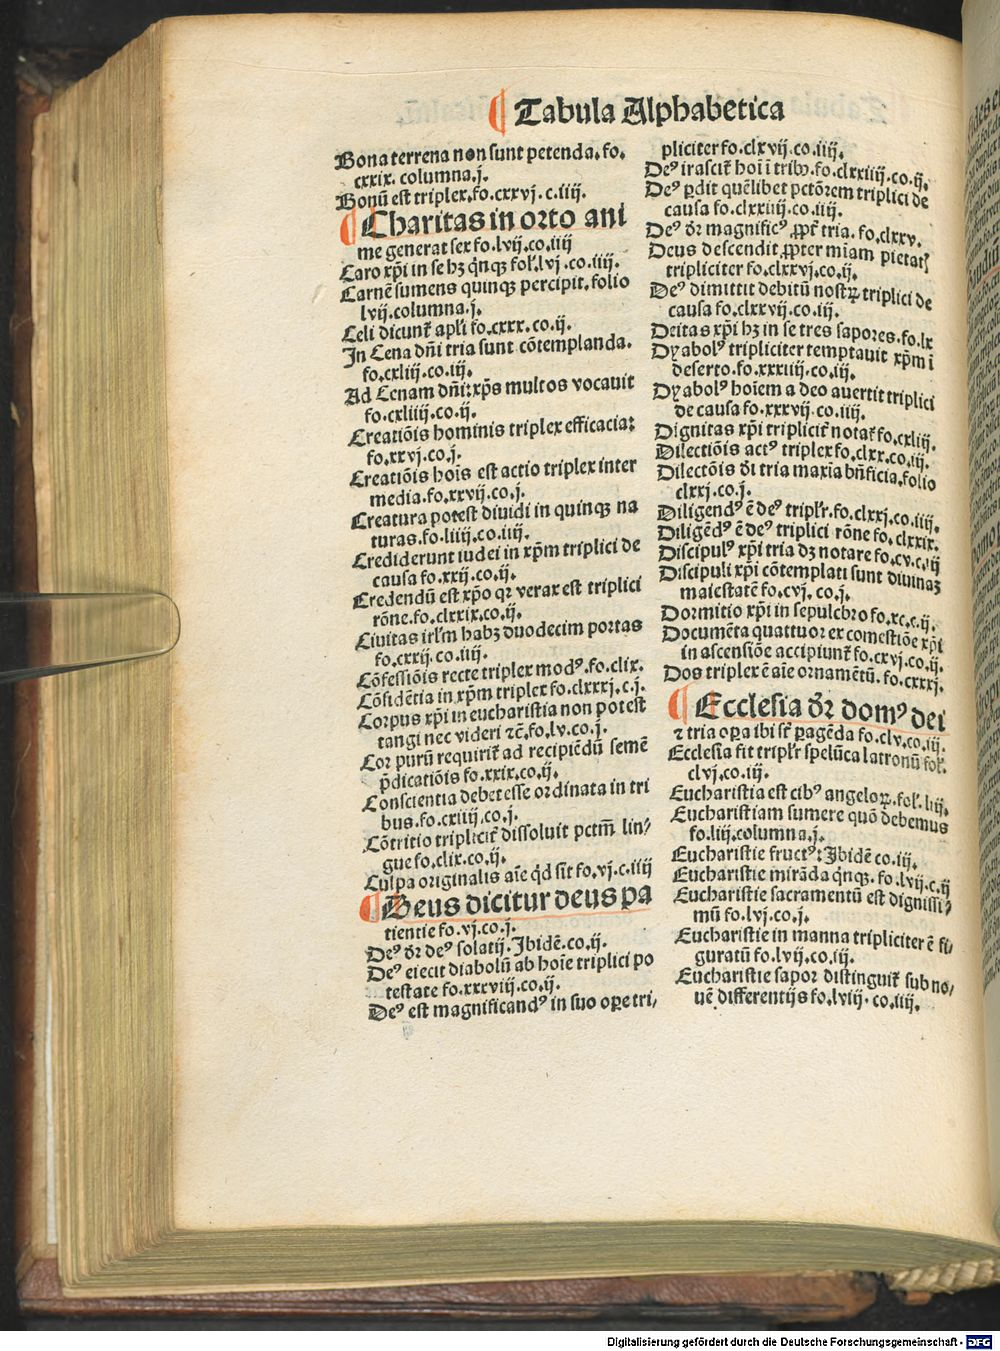 ¶ Tabula Alphabetica
Bona terrena non sunt petenda. fo.
cxxix. columna. j.
Bonū est triplex. fo. cxxvj. c. iiij.
¶ Charitas in orto ani
me generat sex fo. lvij. co. iiij
Caro xp̄i in se hꝫ q̄nqꝫ fol'. lvj. co. iiij.
Carnē sumens quinqꝫ percipit. folio
lvij. columna. j.
Celi dicunt᷑ apl'i fo. cxxx. co. ij.
In Cena dn̄i tria sunt cōtemplanda.
fo. cxliij. co. iij.
Ad Cenam dn̄i: xp̄s multos vocauit
fo. cxliiij. co. ij.
Creatiōis hominis triplex efficacia:
fo. xxvj. co. j.
Creatiōis hoīs est actio triplex inter
media. fo. xxvij. co. j.
Creatura potest diuidi in quinqꝫ na
turas. fo. liiij. co. iiij.
Crediderunt iudei in xp̄m triplici de
causa fo. xxij. co. ij.
Credendū est xp̄o qꝛ verax est triplici
rōne. fo. clxxix. co. ij.
Ciuitas irl'm habꝫ duodecim portas
fo. cxxij. co. iiij.
Cōfessiōis recte triplex modꝰ. fo. clix.
Cōfidētia in xp̄m triplex fo. clxxxj. c. j.
Corpus xp̄i in eucharistia non potest
tangi nec videri ⁊c̄. fo. lv. co. j.
Cor purū requirit᷑ ad recipiēdū semē
p̄dicatiōis fo. xxix. co. ij.
Conscientia debet esse ordinata in tri
bus. fo. cxiiij. co. j.
Cōtritio triplicit᷑ dissoluit pctm̄ lin⸗
gue fo. clix. co. ij.
Culpa originalis aīe q̇d sit fo. vj. c. iiij
¶ Deus dicitur deus pa
tientie fo. vj. co. j.
Deꝰ dr̄ deꝰ solatij. Ibidē. co. ij.
Deꝰ eiecit diabolū ab hoīe triplici po
testate fo. xxxviij. co. ij.
Deꝰ est magnificandꝰ in suo oꝑe tri⸗
pliciter fo. clxvij. co. iiij.
Deꝰ irascit᷑ hoī ī tribꝰ. fo. clxxiiij. co. ij.
Deꝰ ꝑdit quēlibet pctōrem triplici de
causa fo. clxxiiij. co. iiij.
Deꝰ dr̄ magnificꝰ, ꝓpt᷑ tria. fo. clxxv.
Deus descendit ꝓpter mīam pietatꝭ
tripliciter fo. clxxvj. co. ij.
Deꝰ dimittit debitū nostrꝝ triplici de
causa fo. clxxvij. co. iij.
Deitas xp̄i hꝫ in se tres sapores. fo. lx
Dyabolꝰ tripliciter temptauit xp̄m ī
deserto. fo. xxxiiij. co. iij.
Dyabolꝰ hoīem a deo auertit triplici
de causa fo. xxxvij. co. iiij.
Dignitas xp̄i triplicit᷑ notat᷑ fo. cxliij.
Dilectiōis actꝰ triplex fo. clxx. co. iij.
Dilectōis di tria maxīa bn̄ficia. folio
clxxj. co. j.
Diligendꝰ ē deꝰ tripl'r. fo. clxxj. co. iiij.
Diligēdꝰ ē deꝰ triplici rōne fo. clxxix.
Discipulꝰ xp̄i tria dꝫ notare fo. cv. c. ij
Discipuli xp̄i cōtemplati sunt diuinaꝫ
maiestatē fo. cvj. co. j.
Dormitio xp̄i in sepulchro fo. xc. c. ij.
Documēta quattuor ex comestiōe xp̄i
in ascensiōe accipiunt᷑ fo. cxvj. co. ij.
Dos triplex ē aīe ornamētū. fo. cxxxj.
¶ Ecclesia dr̄ domꝰ dei
⁊ tria oꝑa ibi st̄ ꝑagēda fo. clv. co. iij.
Ecclesia fit tripl'r spelūca latronū fol'.
clvj. co. iij.
Eucharistia est cibꝰ angeloꝝ. fol'. liij.
Eucharistiam sumere quō debemus
fo. liij. columna. j.
Eucharistie fructꝰ: Ibidē co. iij.
Eucharistie mirāda q̄nqꝫ. fo. lvij. c. ij
Eucharistie sacramentū est dignissi⸗
mū fo. lvj. co. j.
Eucharistie in manna tripliciter ē fi⸗
guratū fo. lvij. co. iij.
Eucharistie sapor distinguit᷑ sub no⸗
uē differentijs fo. lviij. co. iij.
Digitalisierung gefördert durch die Deutsche Forschungsgemeinschaft - DFG